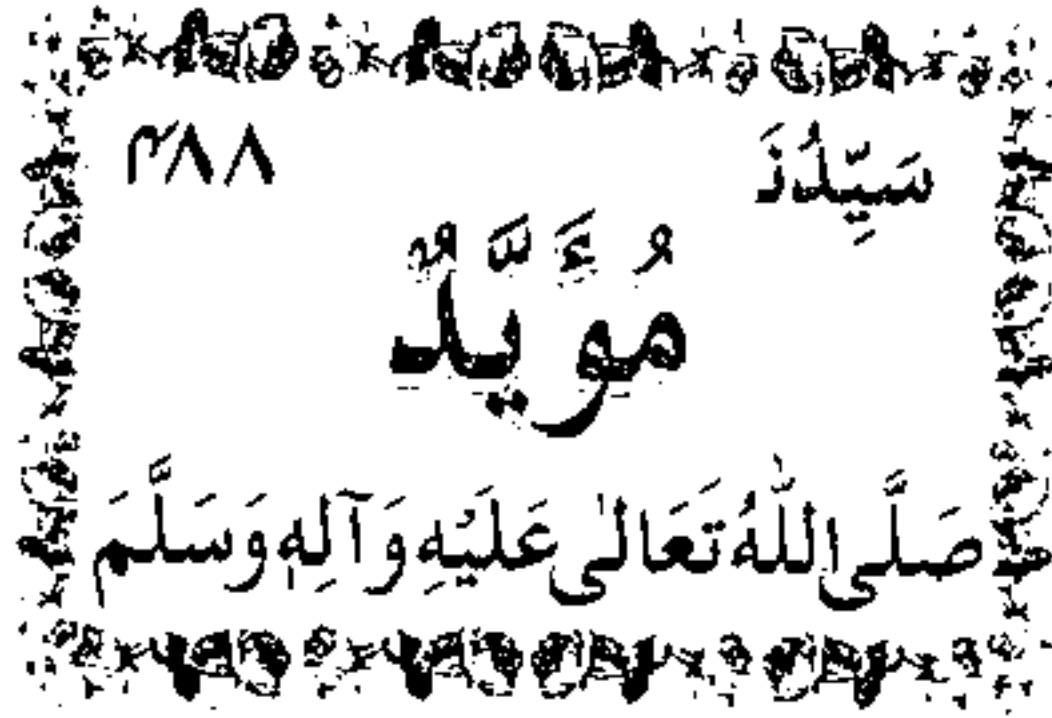 سَيِّدُنَا ۴۸۸
مُؤَيَّدٌ
صَلَّى اللّٰهُ تَعَالٰى عَلَيْهِ وَآلِهٖ وَسَلَّمَ